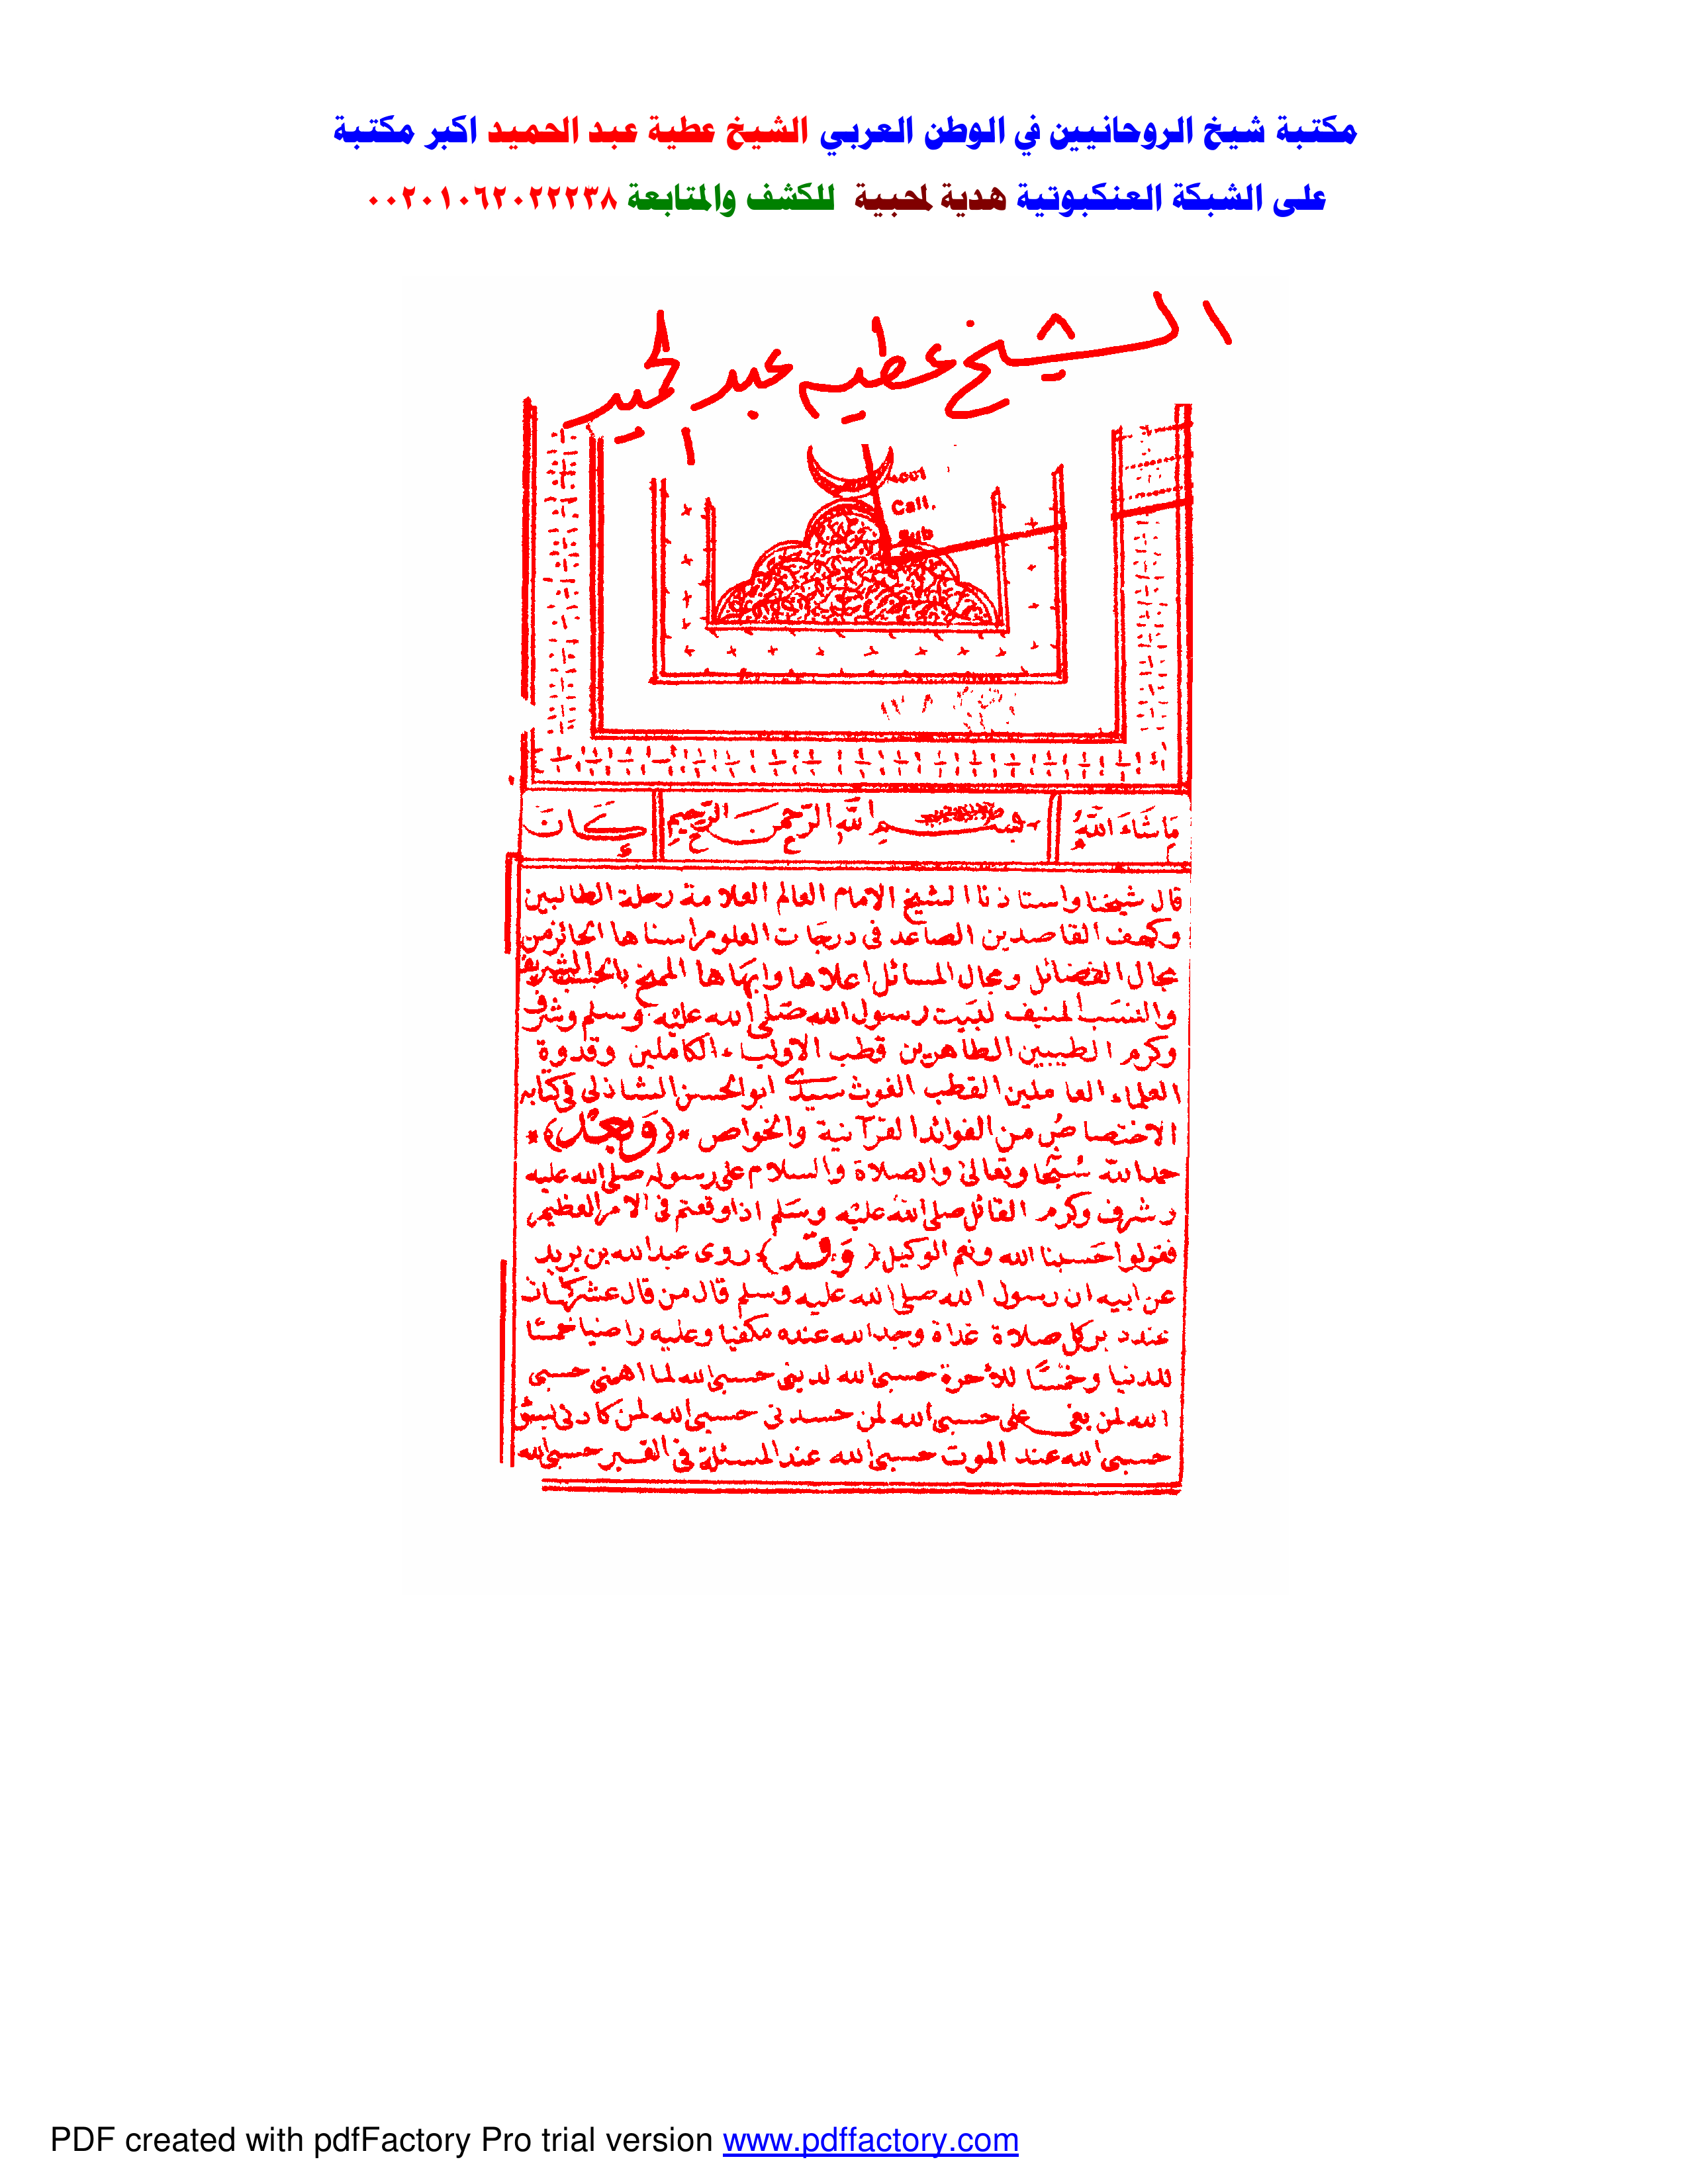 مكتبة شيخ الروحانيين في الوطن العربي الشيخ عطية عبد الحميد اكبر مكتبة
على الشبكة العنكبوتية هدية لمحبية للكشف والمتابعة ٠٠٢٠١٠٦٢٠٢٢٢٣٨
الشيخ عطيه عبد الحميد
Call.
Sub
ما شاء الله
بسم الله الرحمن الرحيم
كان
قال شيخنا واستاذنا الشيخ الامام العالم العلامة رحلة الطالبين
وكهف القاصدين الصاعد فى درجات العلوم اسناها الحائز من
مجال الفضائل ومجال المسائل اعلاها وابهاها الممنح بالحسب الشريف
والنسب المنيف لبيت رسول الله صلى الله عليه وسلم وشرف
وكرم الطيبين الطاهرين قطب الاولياء الكاملين وقدوة
العلماء العاملين القطب الغوث سيدى ابو الحسن الشاذلى فى كتابه
الاختصاص من الفوائد القرآنية والخواص *(وبعد)*
حمد الله سبحا وتعالى والصلاة والسلام على رسوله صلى الله عليه
وشرف وكرم القائل صلى الله عليه وسلم اذا وقعتم فى الامر العظيم
فقولوا حسبنا الله ونعم الوكيل (وقد) روى عبد الله بن بريد
عن ابيه ان رسول الله صلى الله عليه وسلم قال من قال عشر كلمات
عند دبر كل صلاة غداة وجد الله عنده مكفيا وعليه راضيا خمسًا
للدنيا وخمسًا للأخرة حسبى الله لدينى حسبى الله لما اهمنى حسبى
الله لمن بغى على حسبى الله لمن حسدنى حسبى الله لمن كادنى بسوء
حسبى الله عند الموت حسبى الله عند المسئلة فى القبر حسبى الله
PDF created with pdfFactory Pro trial version www.pdffactory.com